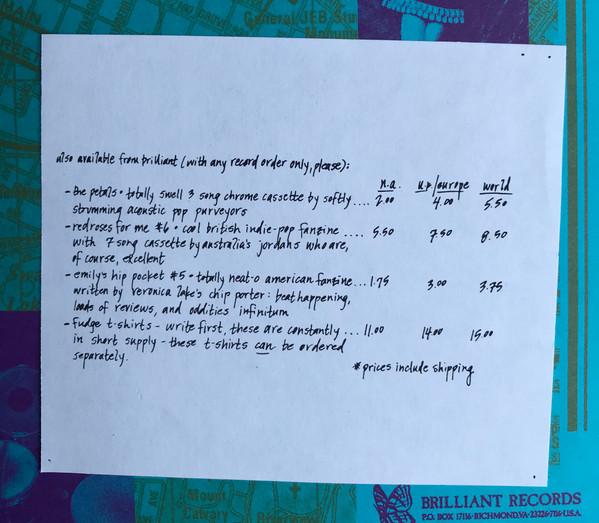 General JEB Stu
Monume
MAIN
STREET
also available from brilliant (with any record order only, please):
n.a. u.k/europe world
- the petals • totally swell 3 song chrome cassette by softly .... 2.00 4.00 5.50
strumming acoustic pop purveyors
- redroses for me #6 • cool british indie-pop fanzine .... 5.50 7.50 8.50
with 7 song cassette by australia's jordans who are,
of course, excellent
- emily's hip pocket #5 • totally neat-o american fanzine ... 1.75 3.00 3.75
written by veronica lake's chip porter: beat happening,
loads of reviews, and oddities infinitum
- fudge t-shirts - write first, these are constantly ... 11.00 14.00 15.00
in short supply - these t-shirts can be ordered
separately.
*prices include shipping
Mount
Calvary
AVE
BRILLIANT RECORDS
P.O. BOX 17156 • RICHMOND, VA • 23226-7156 • U.S.A.